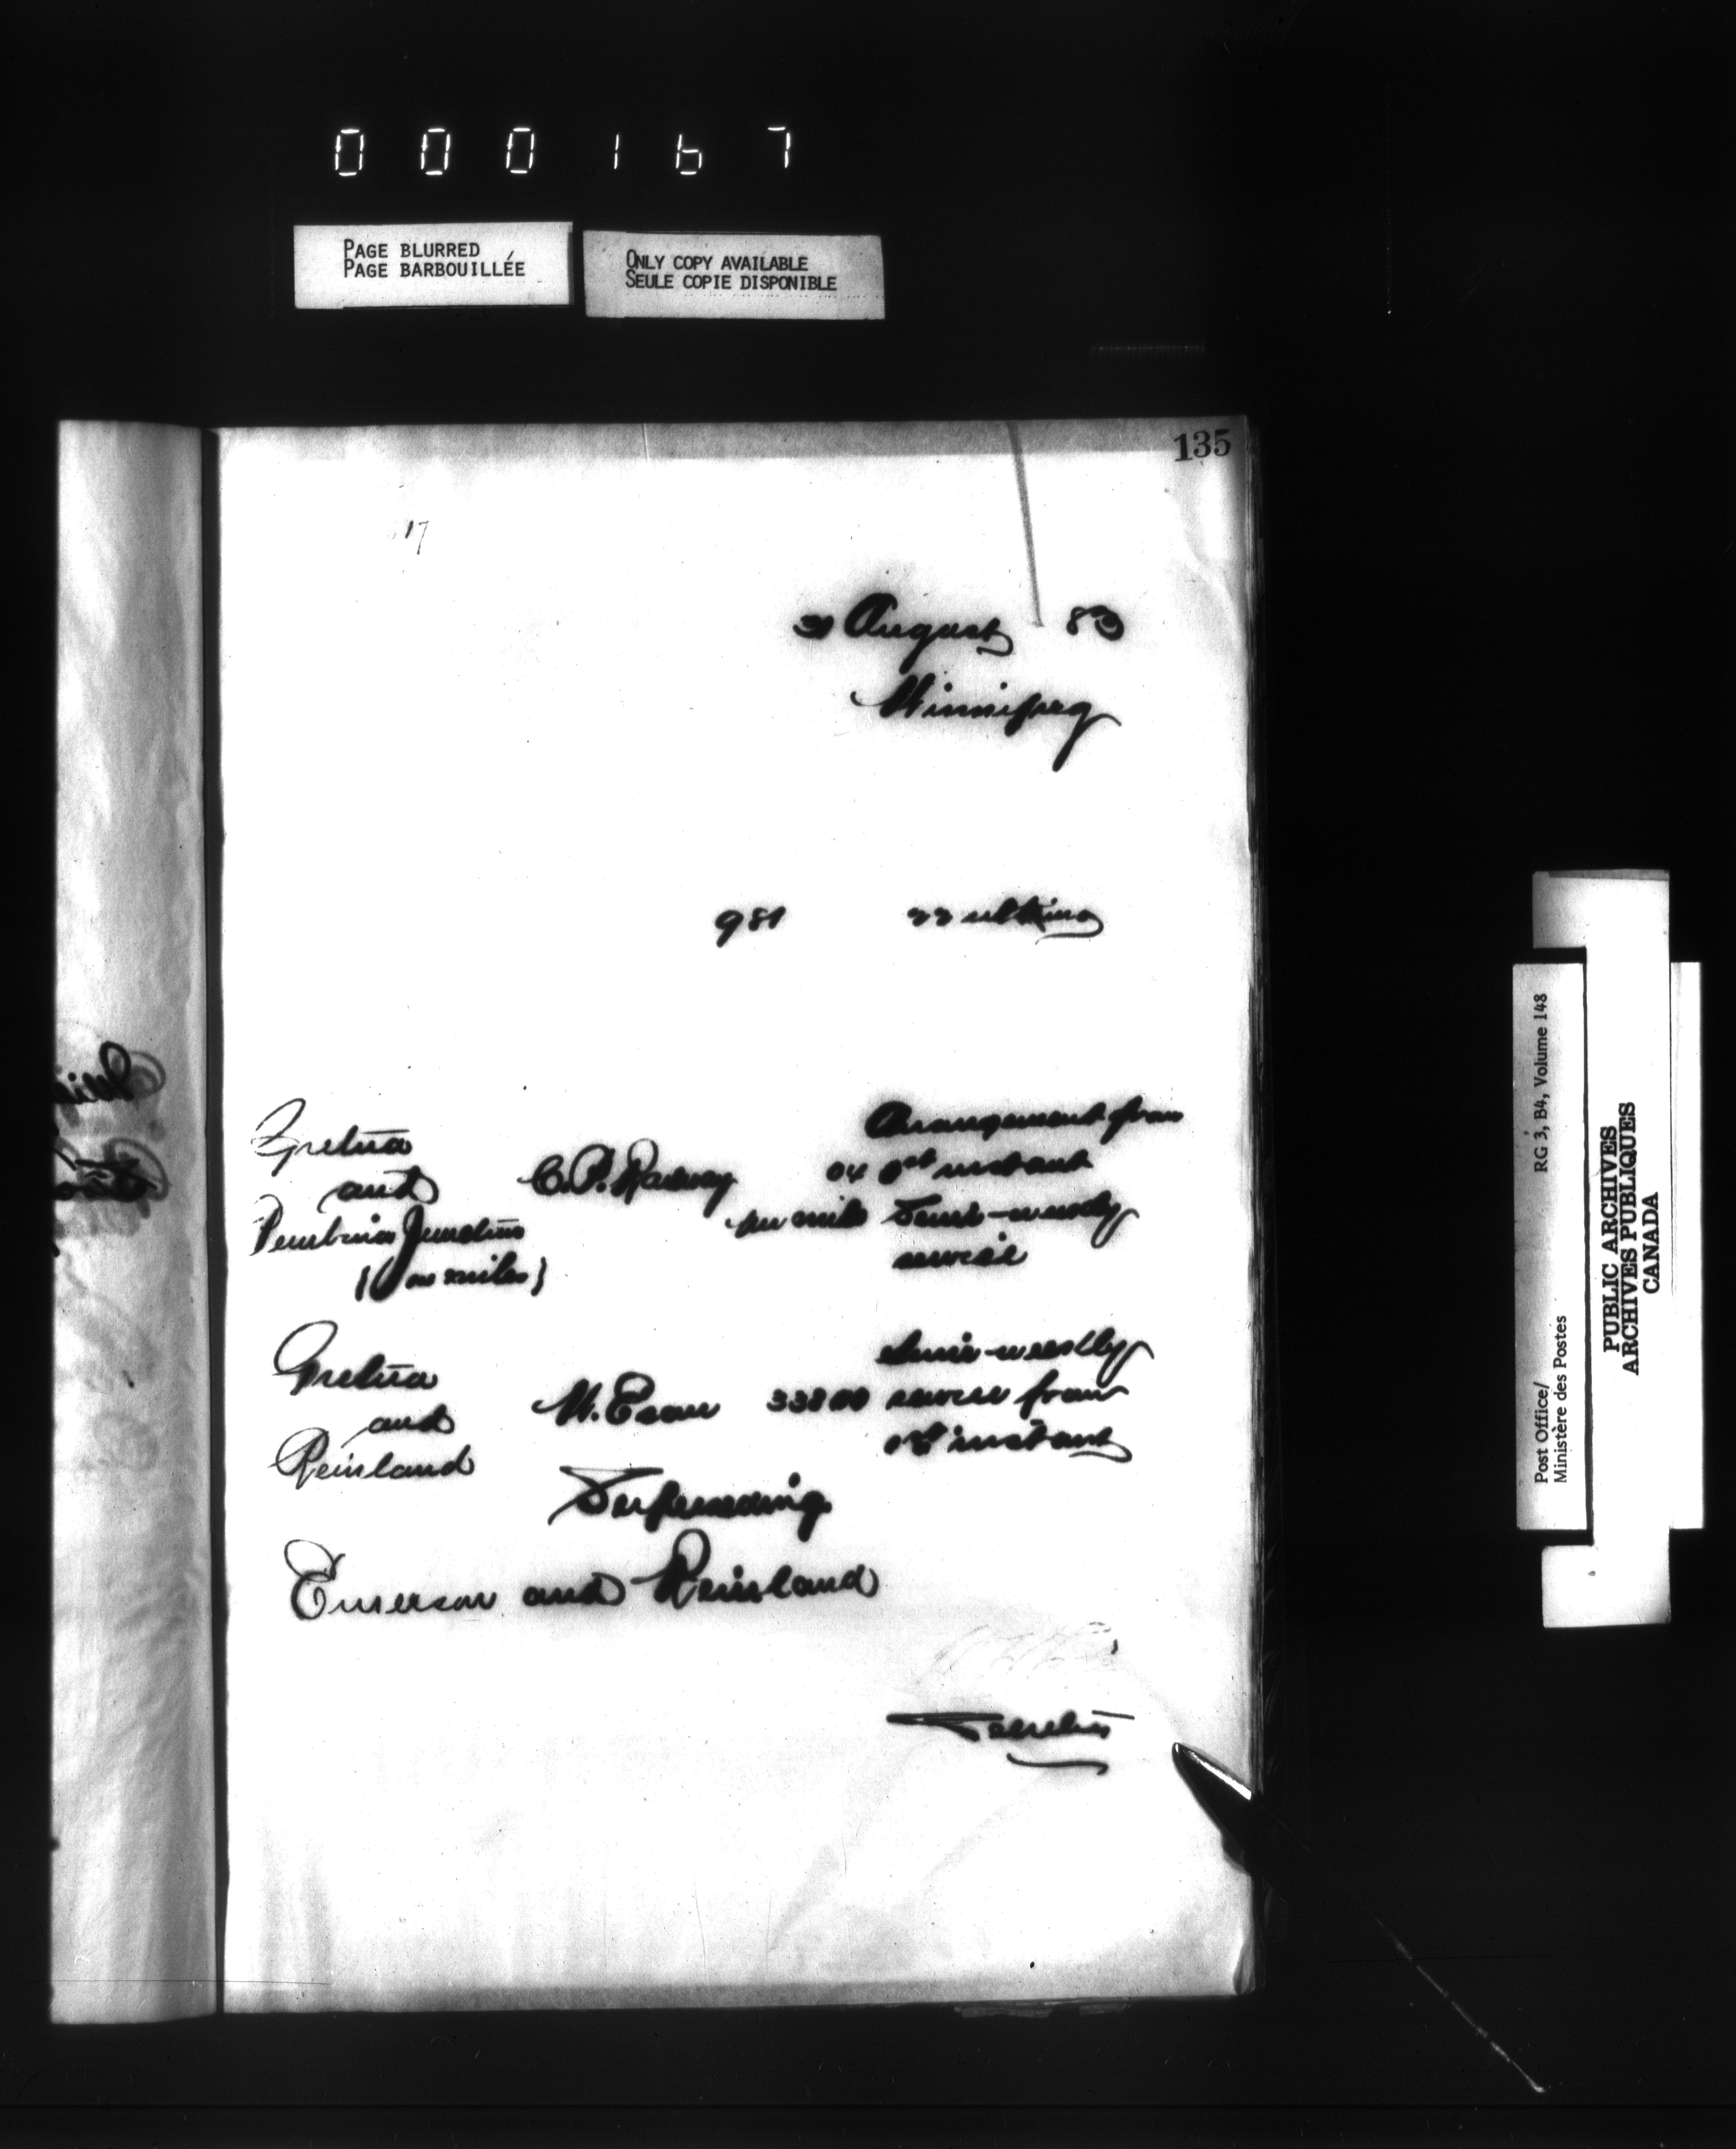 000167
PAGE BLURRED
PAGE BARBOUILLÉE
ONLY COPY AVAILABLE
SEULE COPIE DISPONIBLE
135
17
31 August 83
Winnipeg
981 22 ultimo
Gretna
and
Pembina Junction
miles)
C. P. Railway
04
per mile
Arrangement from
1st instant
Semi-weekly
service
Gretna
and
Reinland
W. Esau 338 00
Semi-weekly
service from
1st instant
Superseding
Emerson and Reinland
RG 3, B4, Volume 148
Post Office/
Ministère des Postes
PUBLIC ARCHIVES
ARCHIVES PUBLIQUES
CANADA